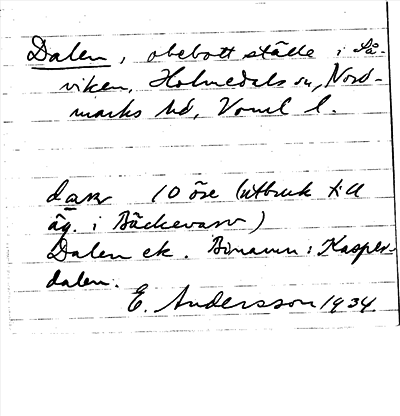 Dalen, obebott ställe i Så-
viken, Holmedals sn, Nord-
marks hd, Vrml l.
10 öre (utbruk till
äg. i Bäckevarv)
Dalen ek. Binamn: Kasper-
dalen.
E. Andersson 1934.